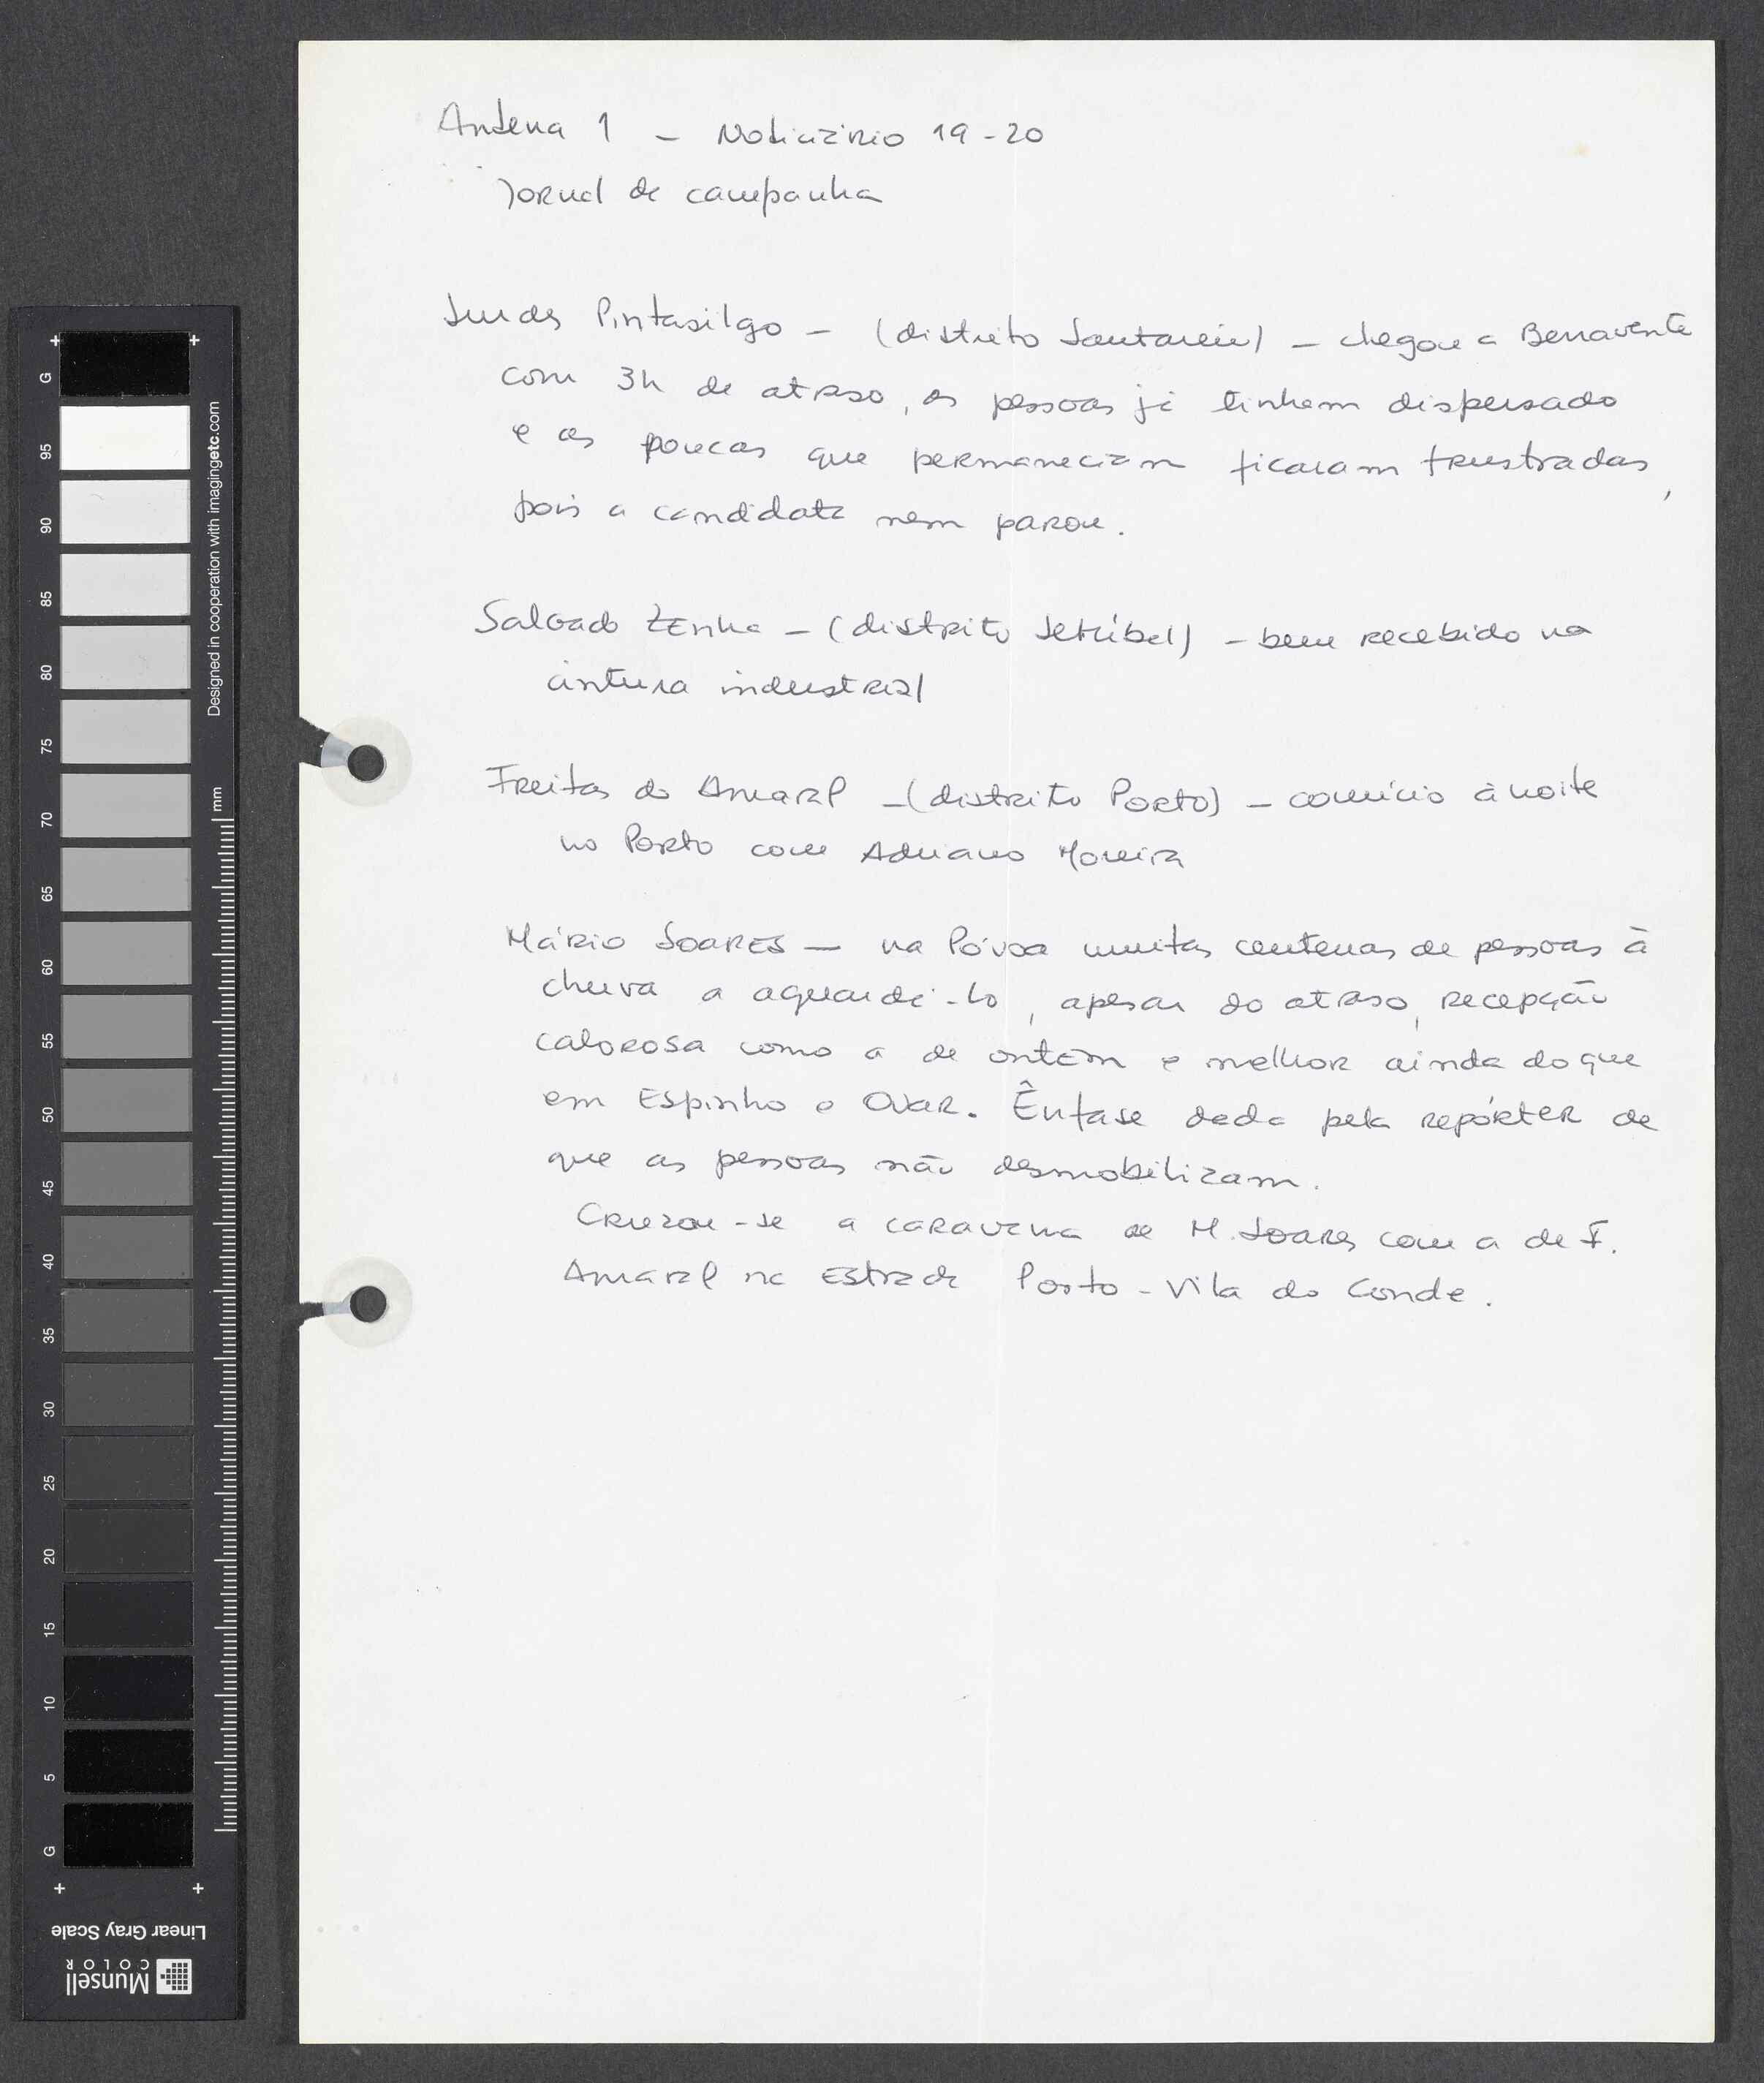 Antena 1 – Noticiário 19-20
Jornal de campanha
Lurdes Pintasilgo – (distrito Santarém) – chegou a Benavente
com 3h de atraso, as pessoas já tinham dispersado
e as poucas que permaneciam ficaram frustradas,
pois a candidata nem parou.
Salgado Zenha – (distrito Setúbal) – bem recebido na
cintura industrial
Freitas do Amaral – (distrito Porto) – comício à noite
no Porto com Adriano Moreira
Mário Soares – na Póvoa muitas centenas de pessoas à
chuva a aguardá-lo, apesar do atraso, recepção
calorosa como a de ontem e melhor ainda do que
em Espinho e Ovar. Ênfase dada pela repórter de
que as pessoas não desmobilizam.
Cruzou-se a caravana de M. Soares com a de F.
Amaral na Estrada Porto-Vila do Conde.
G
95
90
85
80
75
70
65
60
55
50
45
40
35
30
25
20
15
10
5
G
mm
Designed in cooperation with imagingetc.com
Linear Gray Scale
Munsell
COLOR